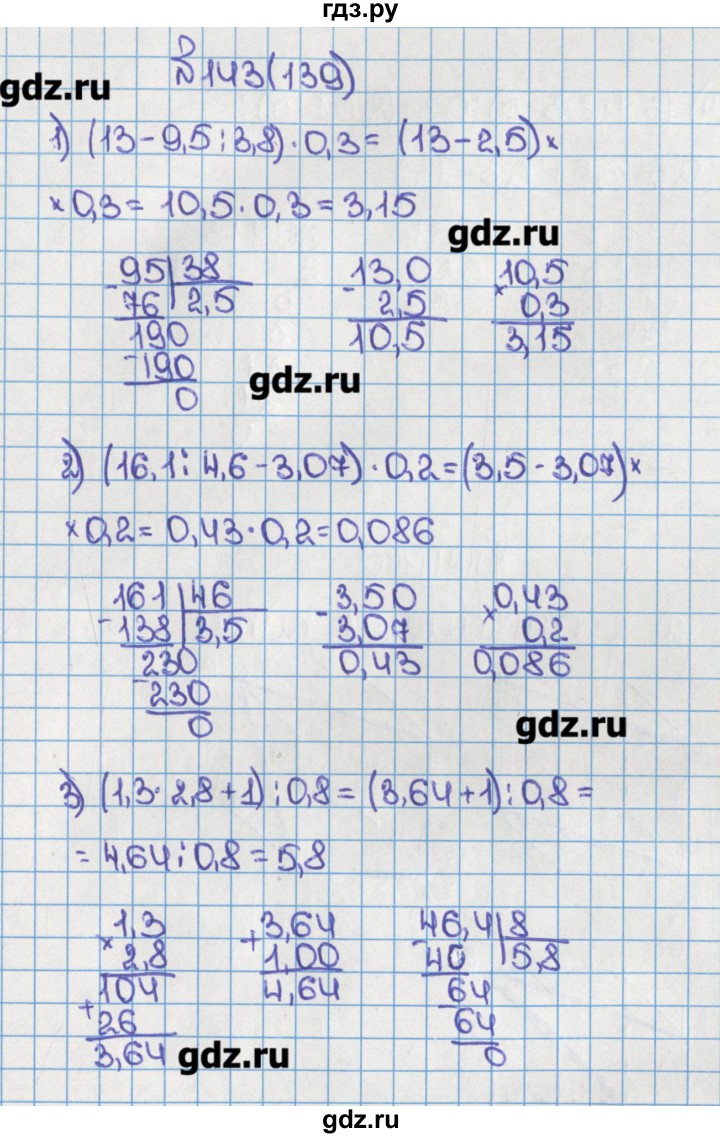 гдз.ру
№143(139)
gdz.ru
1) (13-9,5:3,8)·0,3= (13-2,5)×
×0,3= 10,5·0,3=3,15
gdz.ru
95|38
-76 |2,5
190
-190
0
13,0
- 2,5
10,5
10,5
× 0,3
3,15
gdz.ru
2) (16,1:4,6-3,07)·0,2=(3,5-3,07)×
×0,2= 0,43·0,2=0,086
161|46
-138|3,5
230
-230
0
3,50
-3,07
0,43
0,43
× 0,2
0,086
gdz.ru
3) (1,3·2,8+1):0,8= (3,64+1):0,8=
= 4,64:0,8=5,8
1,3
×2,8
104
+26
3,64
3,64
+1,00
4,64
46,4|8
-40 |5,8
64
-64
0
gdz.ru
gdz.ru